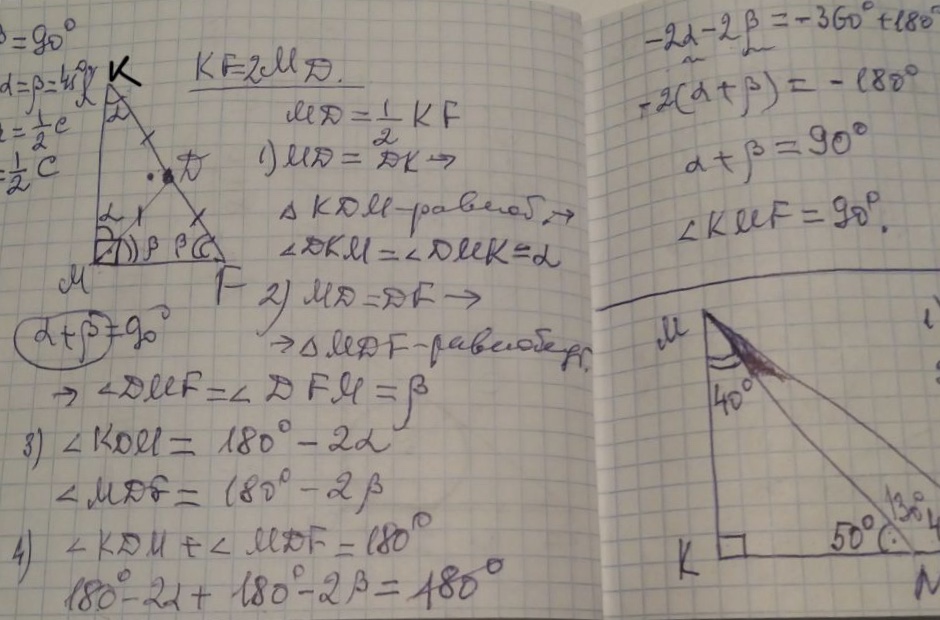 = 90°
α = β = 45°
= 1/2 C
= 1/2 C
K
α
D
α
β β
M F
α + β = 90°
KF = 2MD.
MD = 1/2 KF
1) MD = DK →
△ KDM - равноб, →
∠DKM = ∠DMK = α
2) MD = DF →
→ △ MDF - равнобедр.
→ ∠DMF = ∠DFM = β
3) ∠KDM = 180° - 2α
∠MDF = 180° - 2β
4) ∠KDM + ∠MDF = 180°
180° - 2α + 180° - 2β = 180°
-2α - 2β = -360° + 180°
-2(α + β) = -180°
α + β = 90°
∠KMF = 90°.
M
40°
130°
50°
K N